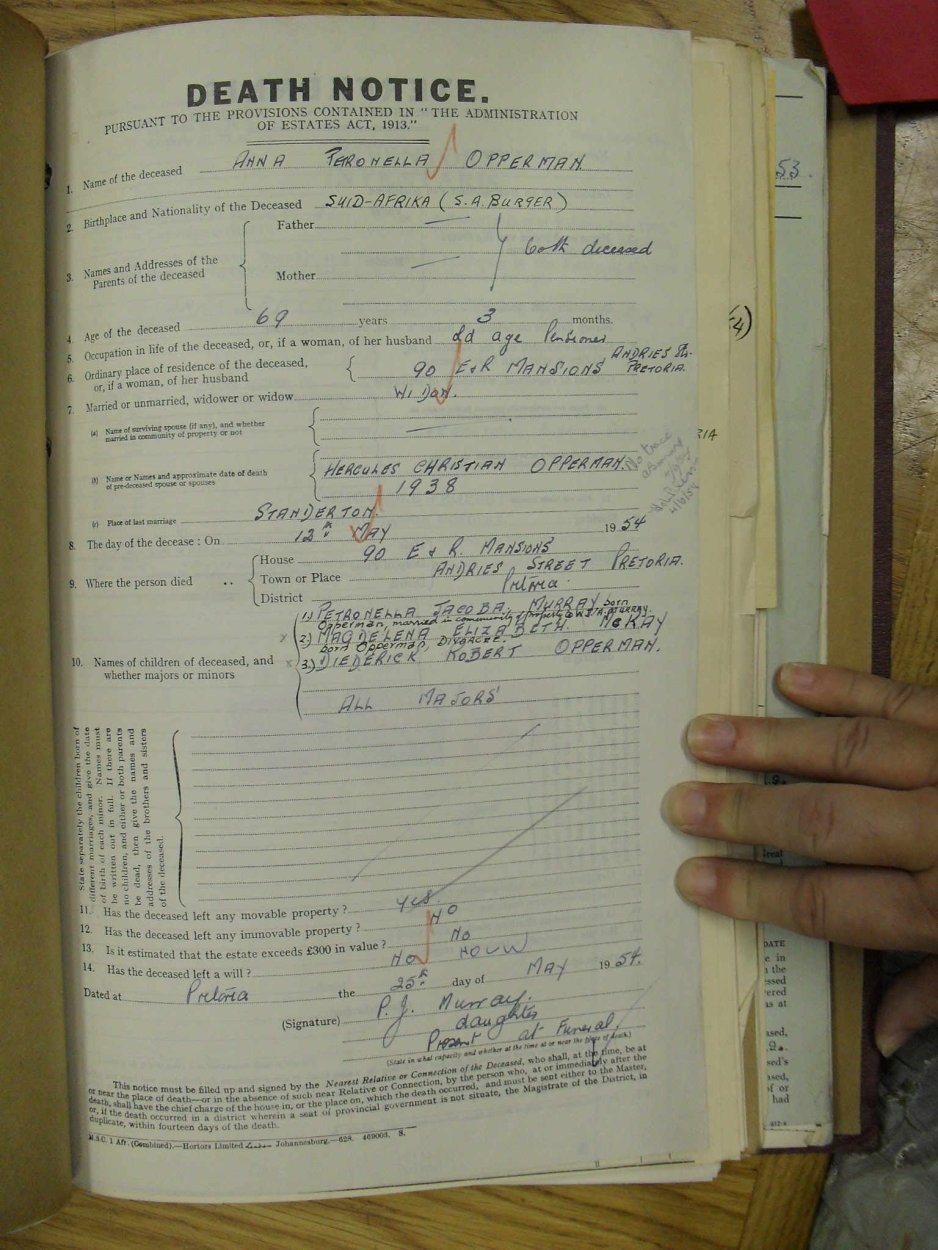 DEATH NOTICE.
PURSUANT TO THE PROVISIONS CONTAINED IN "THE ADMINISTRATION
OF ESTATES ACT, 1913."
1. Name of the deceased ANNA PERONELLA OPPERMAN.
2. Birthplace and Nationality of the Deceased SUID-AFRIKA (S.A. BURGER)
3. Names and Addresses of the Parents of the deceased
Father
both deceased
Mother
4. Age of the deceased 69 years 3 months.
5. Occupation in life of the deceased, or, if a woman, of her husband old age Pensioner
6. Ordinary place of residence of the deceased, or, if a woman, of her husband 90 E & R MANSIONS ANDRIES St. PRETORIA.
7. Married or unmarried, widower or widow WIDOW.
(a) Name of surviving spouse (if any), and whether married in community of property or not
(b) Name or Names and approximate date of death of pre-deceased spouse or spouses
HERCULES CHRISTIAN OPPERMAN.
1938
(c) Place of last marriage STANDERTON.
8. The day of the decease : On 12th MAY 1954
9. Where the person died ..
House 90 E & R. MANSIONS
Town or Place ANDRIES STREET PRETORIA.
District Pretoria.
10. Names of children of deceased, and whether majors or minors
1) PETRONELLA JACOBA, MURRAY born
Opperman, married in community of property to W.J.A. MURRAY.
2) MAGDELENA ELIZABETH. McKAY
born Opperman, Divorcee.
3) DIEDERICK ROBERT OPPERMAN.
ALL MAJORS
State separately the children born of
different marriages, and give the date
of birth of each minor. Names must
be written out in full. If there are
no children, and either or both parents
be dead, then give the names and
addresses of the brothers and sisters
of the deceased.
11. Has the deceased left any movable property ? Yes.
12. Has the deceased left any immovable property ? NO
13. Is it estimated that the estate exceeds £300 in value ? No
14. Has the deceased left a will ? NO
Dated at Pretoria the 25th day of MAY 1954.
(Signature) P. J. Murray.
daughter
Present at Funeral.
(State in what capacity and whether at the time at or near the place of death.)
This notice must be filled up and signed by the Nearest Relative or Connection of the Deceased, who shall, at the time, be at
or near the place of death—or in the absence of such near Relative or Connection, by the person who, at or immediately after the
death, shall have the chief charge of the house in, or the place on, which the death occurred, and must be sent either to the Master,
or, if the death occurred in a district wherein a seat of provincial government is not situate, the Magistrate of the District, in
duplicate, within fourteen days of the death.
M.S.C. 1 Aft. (Combined).—Hortors Limited Johannesburg.—628. 469003. S.
53.